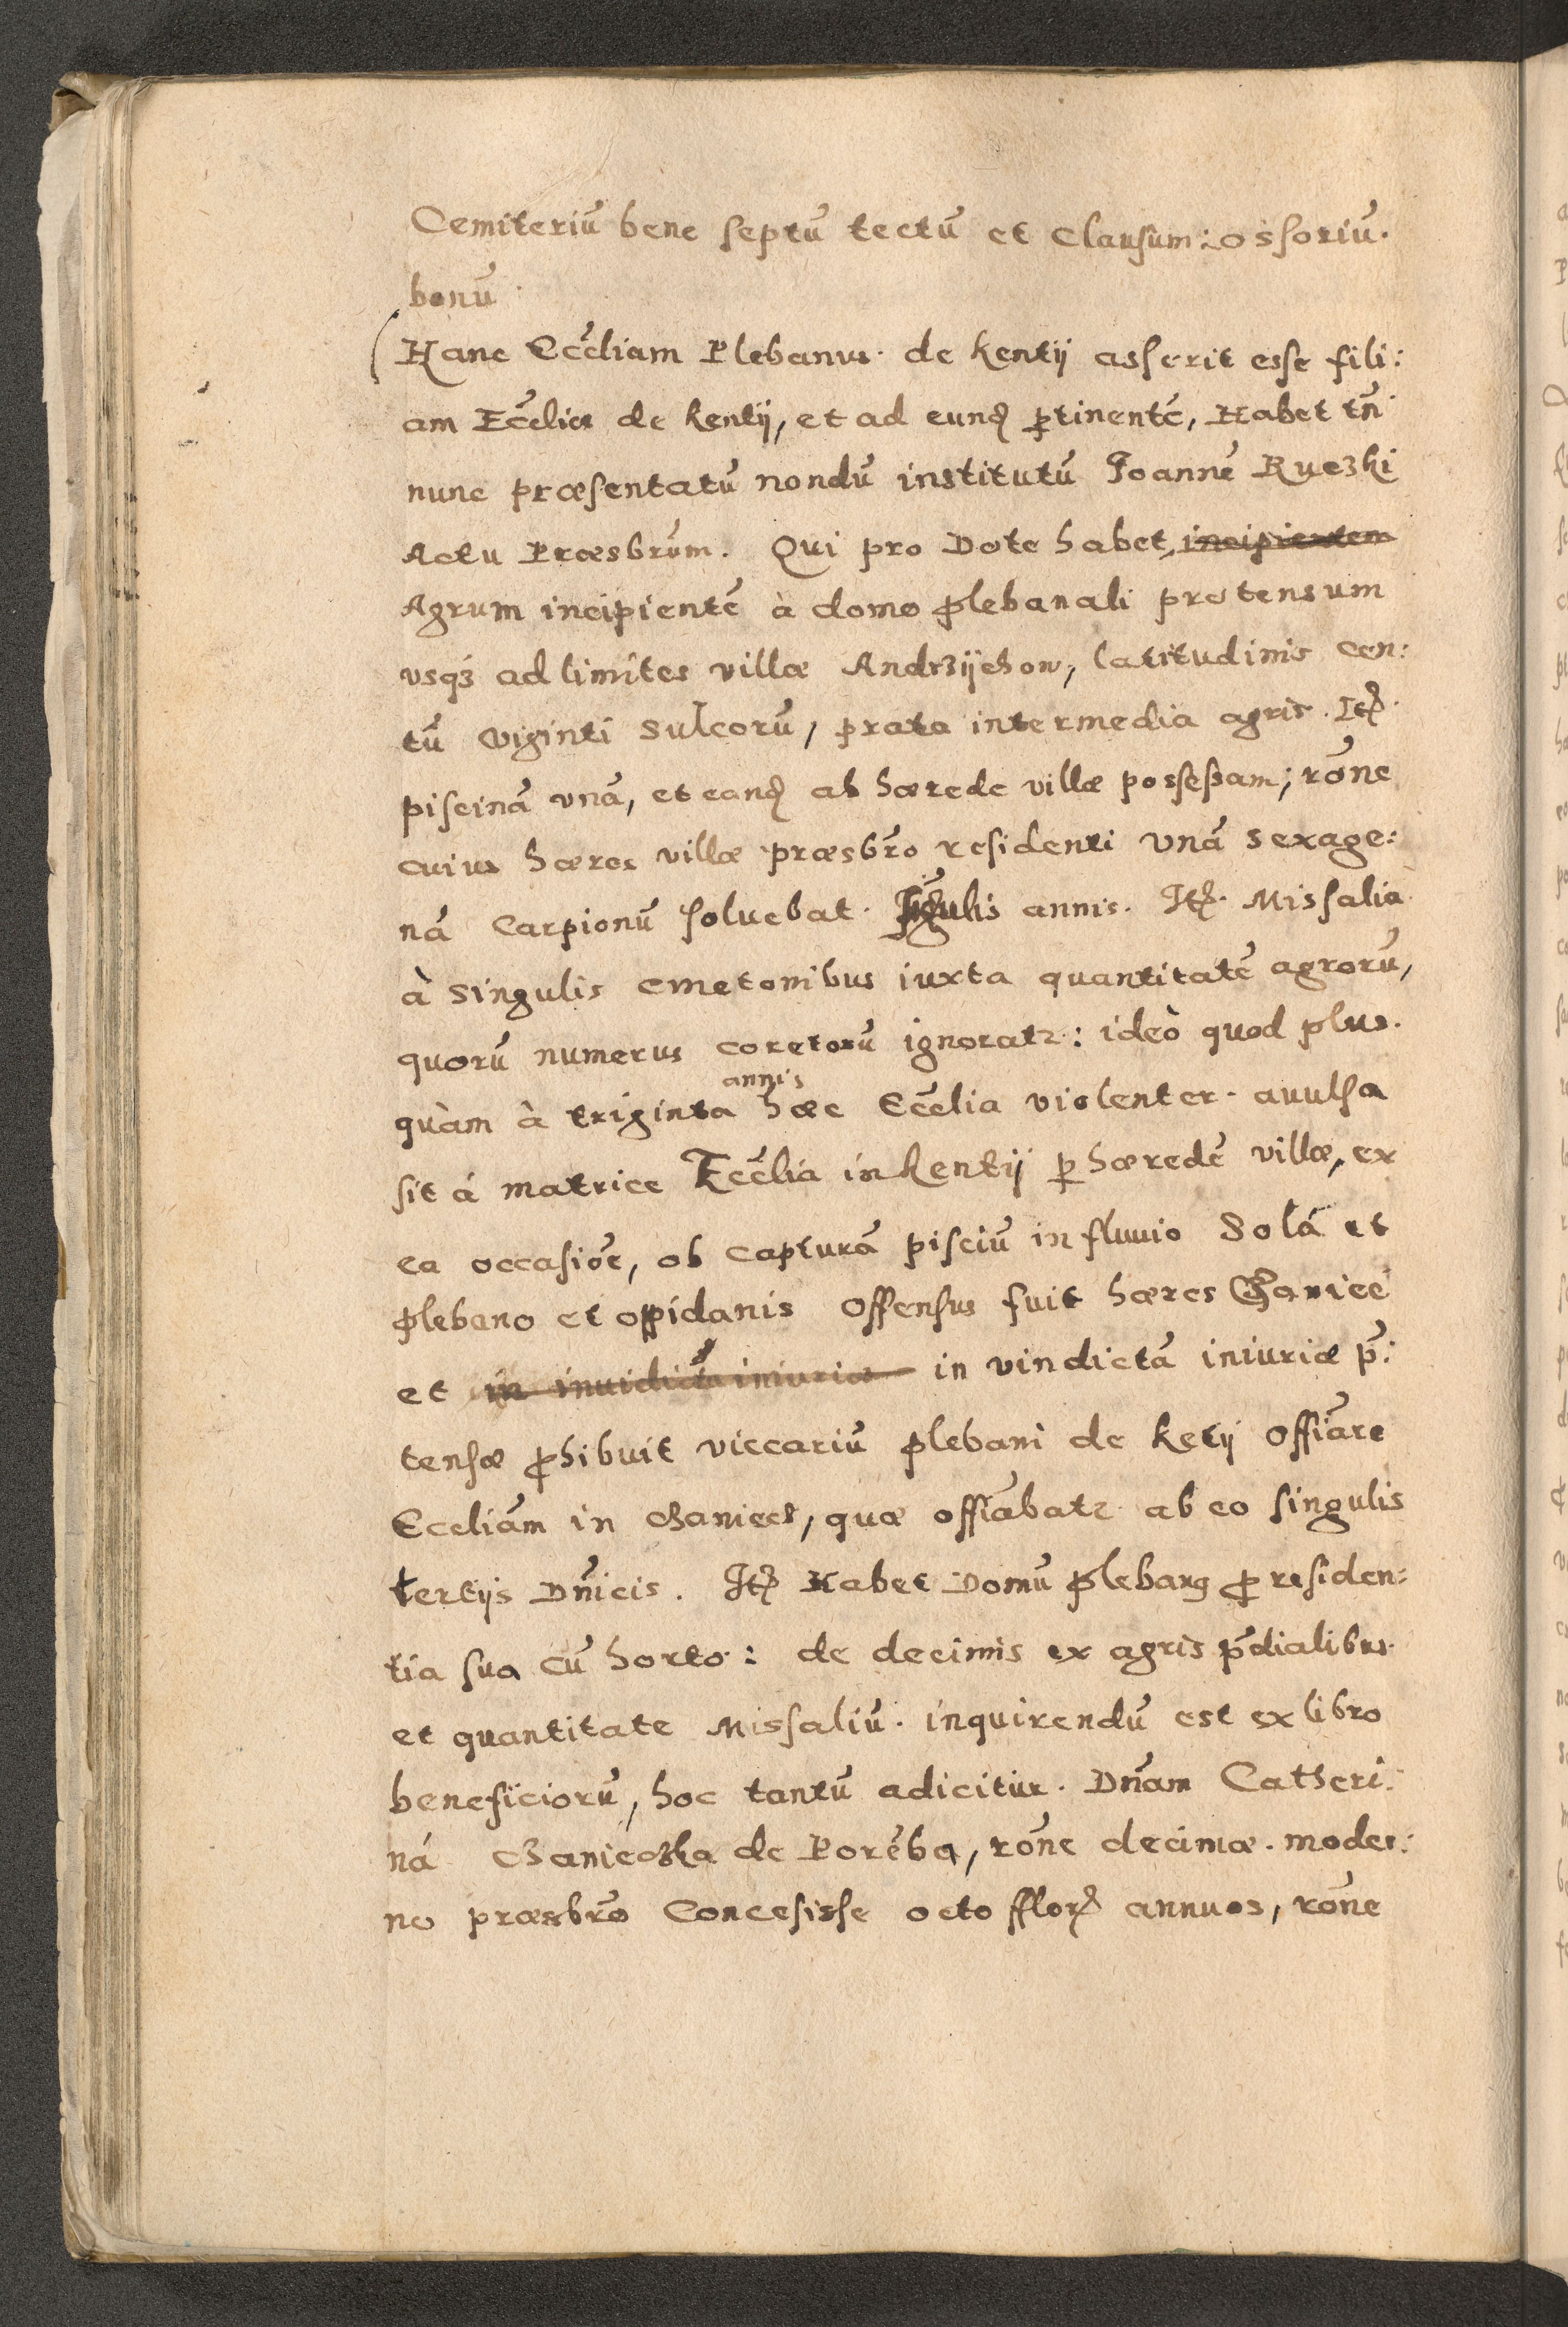 Cemiteriū bene septū tectū et clausum: ossoriū.
bonū.
Hanc Eccliam Plebanus de Kentij asserit esse fili:
am Eccliæ de Kentij, et ad eund pertinentē, Habet tn̄
nunc præsentatū nondū institutū Joannē Ruczki
Actu Præsbrūm. Qui pro Dote habet, incipientem
Agrum incipientē à domo plebanali protensum
usq3 ad limites villæ Andrzijchow, latitudinis cen:
tū viginti sulcorū, prata intermedia agris. Itꝫ.
piscinā unā, et eand ab hærede villæ possessam; rōne
cuius hæres villæ præsbrō residenti unā sexage:
nā carpionū soluebat. singulis annis. Itꝫ. Missalia
à singulis cmetonibus iuxta quantitatē agrorū,
quorū numerus coretorū ignorat2: ideò quod plus.
annis
quàm à triginta hæc Ecclia violenter. auulsa
sit á matrice Ecclia in Kentij ꝑ hæredē villæ, ex
ea occasiōe, ob capturā pisciū in fluuio Solá et
plebano et oppidanis offensus fuit hæres Ganice
et in inuidictā iniuriæ in vindictā iniuriæ p̄:
tensæ ꝓhibuit viccariū plebani de Ketij offiāre
Eccliam in Chaniecz, quæ offiābat2 ab eo singulis
tertijs Dn̄icis. Itꝫ Habet Domū plebanꝫ ꝓ residen:
tia sua cū horto: de decimis ex agris p̄dialibus
et quantitate Missaliū. inquirendū est ex libro
beneficiorū, hoc tantū adicitur. Dn̄am Catheri:
ná Chanieczka de Porēba, rōne decimæ. moder:
no præsbrō concesisse octo fflorꝫ annuos, rōne